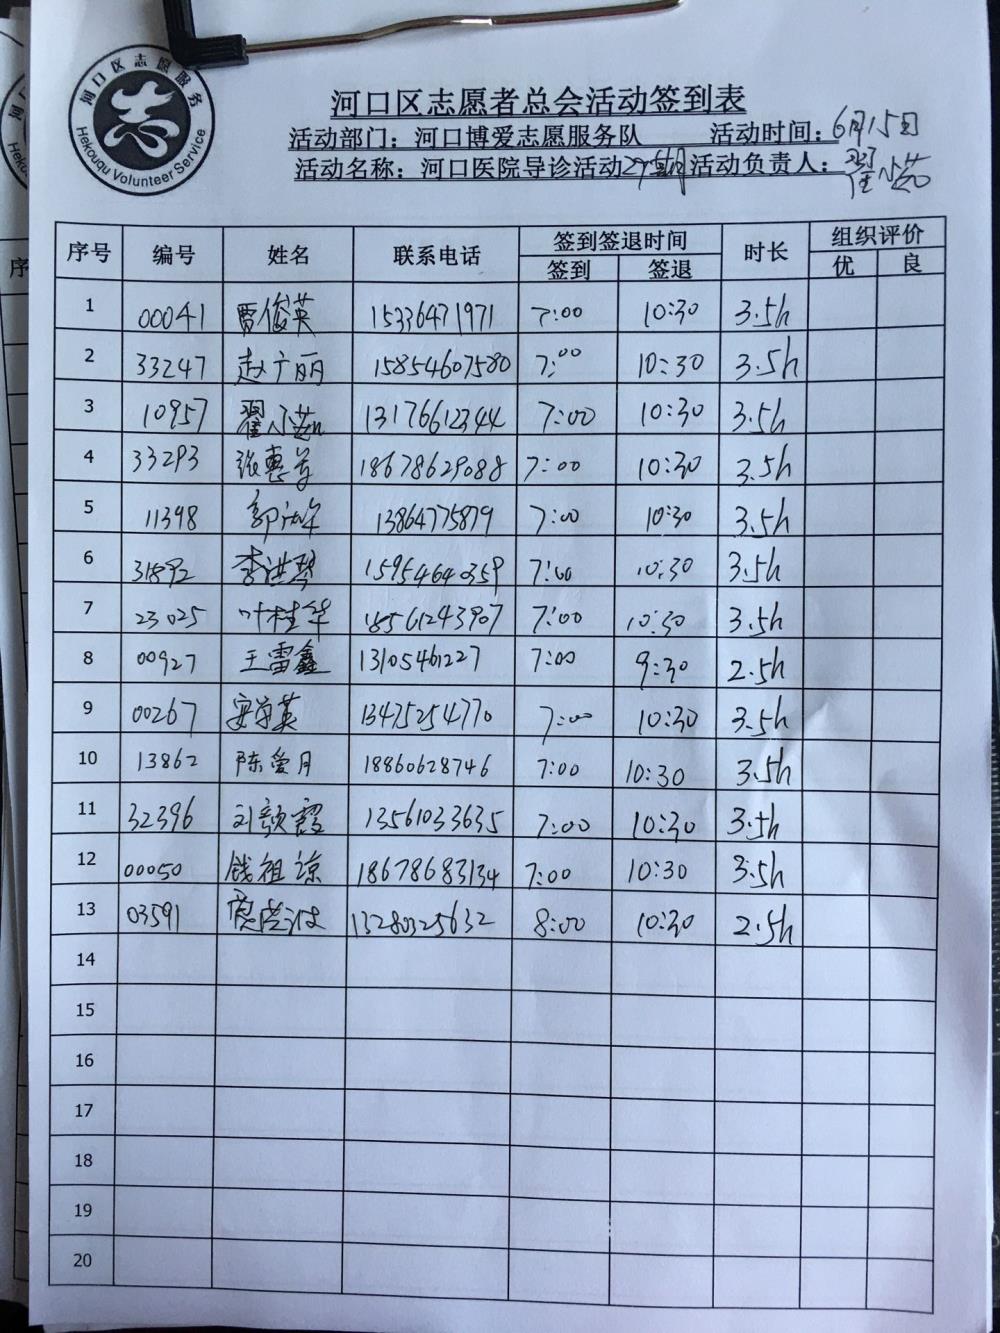 河口区志愿服务
Hekouqu Volunteer Service
河口区志愿者总会活动签到表
活动部门：河口博爱志愿服务队 活动时间：6月15日
活动名称：河口医院导诊活动 活动负责人：翟小茹
序号 编号 姓名 联系电话 签到签退时间 时长 组织评价
签到 签退 优 良
1 00041 贾俊英 15336471971 7:00 10:30 3.5h
2 33247 赵广丽 15854607580 7:00 10:30 3.5h
3 10957 翟小茹 13176612344 7:00 10:30 3.5h
4 33293 张惠芳 18678629088 7:00 10:30 3.5h
5 11398 郭 13864775879 7:00 10:30 3.5h
6 31892 李洪琴 15954640359 7:00 10:30 3.5h
7 23025 叶桂华 18561243907 7:00 10:30 3.5h
8 00927 王雷鑫 13105461227 7:00 9:30 2.5h
9 00267 英 13475254770 7:00 10:30 3.5h
10 13862 陈爱月 18860628746 7:00 10:30 3.5h
11 32396 刘颜霞 13561033635 7:00 10:30 3.5h
12 00050 钱祖谅 18678683134 7:00 10:30 3.5h
13 03591 13280325632 8:00 10:30 2.5h
14
15
16
17
18
19
20